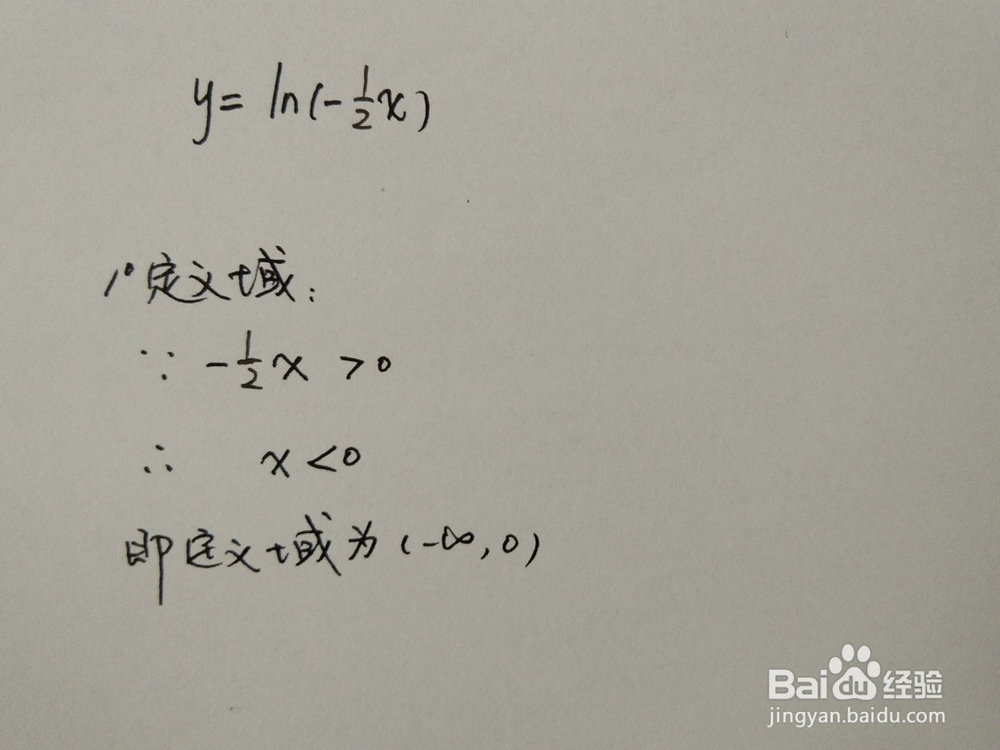 y = ln(-½x)
1° 定义域:
∵ -½x >0
∴ x<0
即定义域为(-∞,0)
Baidu 经验
jingyan.baidu.com